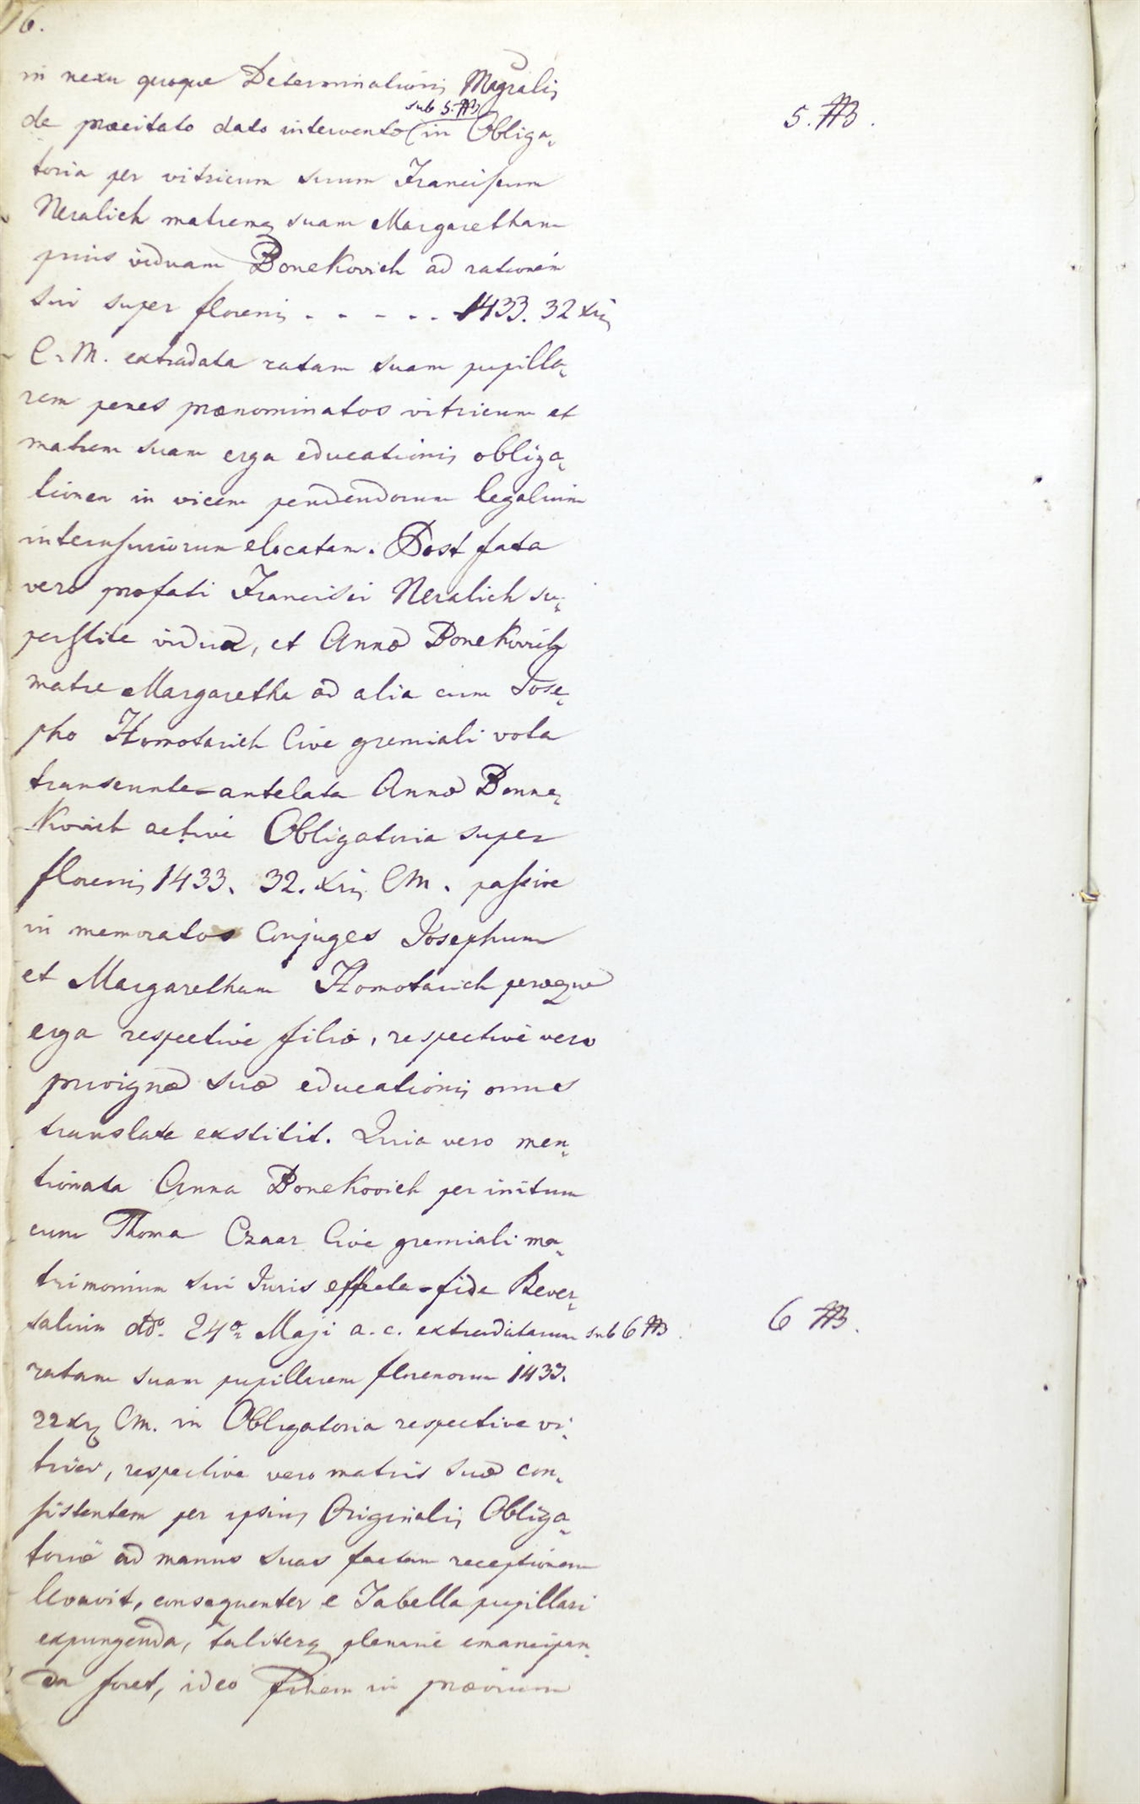 16.
in nexu quoque Determinationis Magralis
sub 5. ₶
de praecitato dato intervento in Obliga-
5. ₶.
toria per vitricum suum Franciscum
Neralich matremq suam Margaretham
prius viduam Bonekovich ad rationem
sui super florenis . - - . . 1433. 32 xris
C. M. extradata ratam suam pupilla-
rem penes praenominatos vitricum et
matrem suam erga educationis obliga-
tionem in vicem pendendorum legalium
interusuriorum elocatam. Post fata
vero profati Francisci Neralich su-
perstite viduae, et Annae Bonekovich
matre Margaretha ad alia cum Jose-
pho Homotarich Cive gremiali vota
transeunte antelata Annae Bonne-
kovich activé Obligatoria super
florenis 1433. 32. xris CM. passive
in memoratos Conjuges Josephum
et Margaretham Homotarich peraeque
erga respective filiae, respectivé vero
privignae suae educationis onus
translata exstitit. Quia vero men-
tionata Anna Bonekovich per initum
cum Thoma Czaar Cive gremiali ma-
trimonium sui Juris effecta fide Rever-
salium ddo. 24a Maji a. c. extradatarum sub 6 ₶
6 ₶.
ratam suam pupillarem florenorum 1433.
22 xrq CM. in Obligatoria respective vi-
trici, respective vero matris suae con-
sistentem per ipsius Originalis Obliga-
toriae ad manus suas factam receptionem
levavit, consequenter e Tabella pupillari
expungenda, taliterq plenarie emancipan-
da foret, ideo finem in praevium